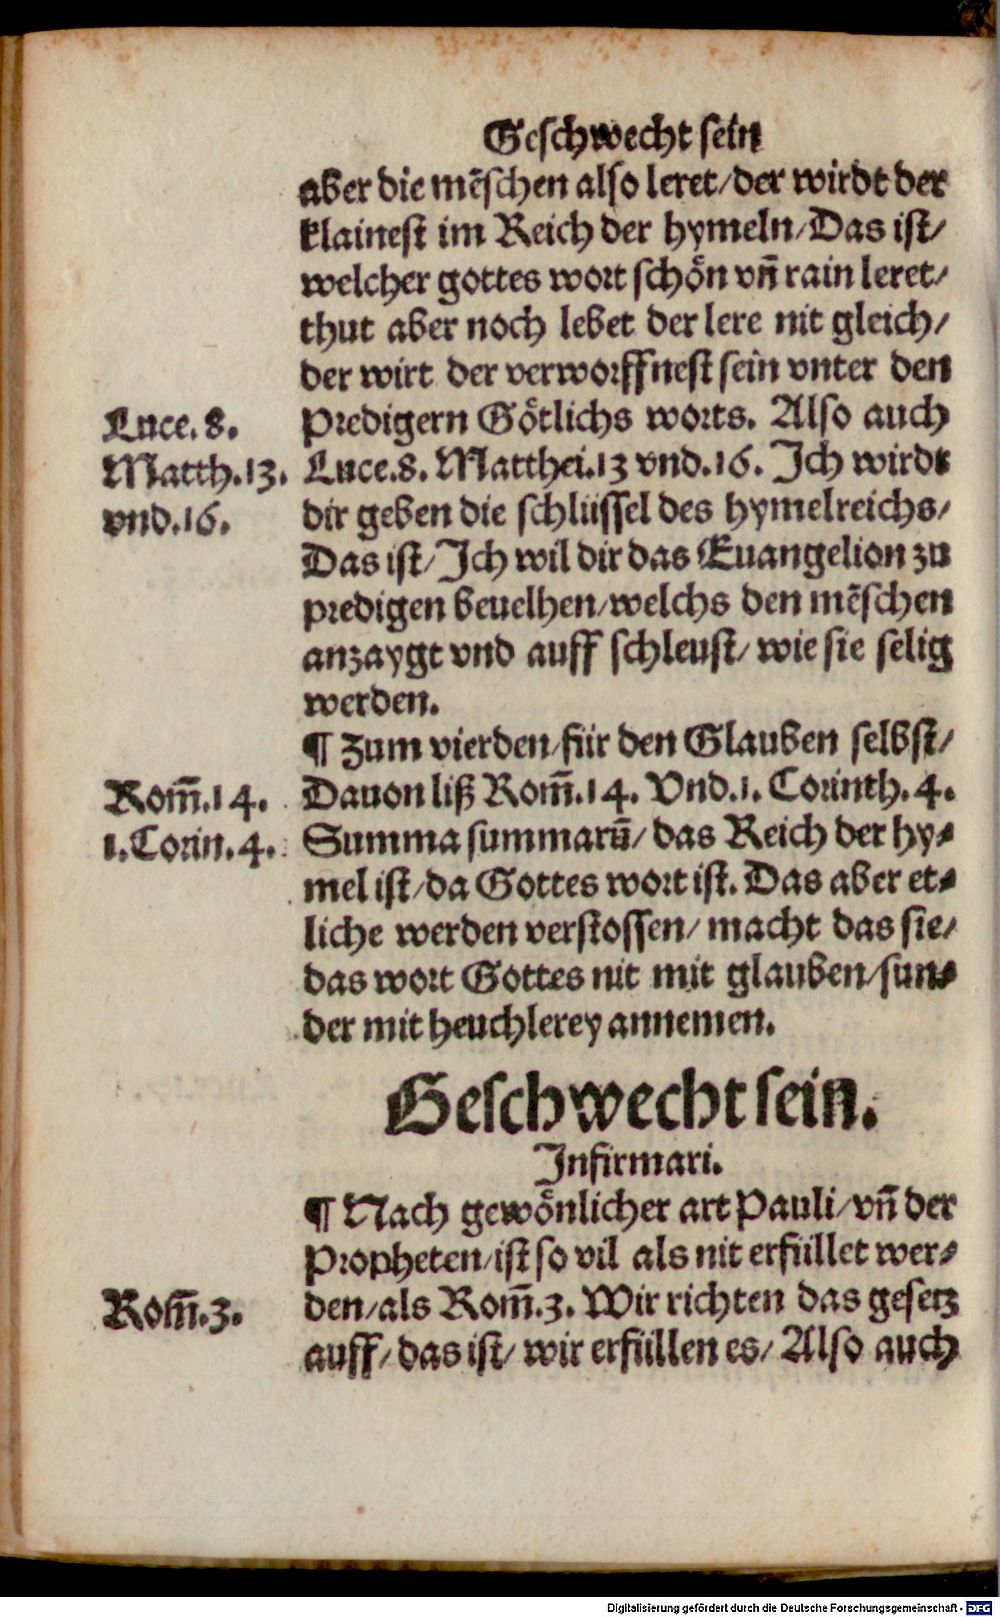 Geschwecht sein
aber die mẽschen also leret/der wirdt der
klainest im Reich der hymeln/Das ist/
welcher gottes wort schoͤn vñ rain leret/
thut aber noch lebet der lere nit gleich/
der wirt der verworffnest sein vnter den
Predigern Goͤtlichs worts. Also auch
Luce. 8.
Luce.8. Matthei.13 vnd.16. Ich wirdt
Matth.13.
dir geben die schlüssel des hymelreichs/
vnd.16.
Das ist/Ich wil dir das Euangelion zu
predigen beuelhen/welchs den mẽschen
anzaygt vnd auff schleust/wie sie selig
werden.
¶ Zum vierden/für den Glauben selbst/
Dauon liß Rom̃.14. Vnd.1. Corinth.4.
Rom̃.14.
Summa summarũ/das Reich der hy-
1.Corin.4.
mel ist/da Gottes wort ist. Das aber et-
liche werden verstossen/macht das sie/
das wort Gottes nit mit glauben/sun-
der mit heuchlerey annemen.
Geschwecht sein.
Infirmari.
¶ Nach gewoͤnlicher art Pauli/vñ der
Propheten/ist so vil als nit erfüllet wer-
den/als Rom̃.3. Wir richten das gesetz
Rom̃.3.
auff/das ist/wir erfüllen es/Also auch
Digitalisierung gefördert durch die Deutsche Forschungsgemeinschaft - DFG